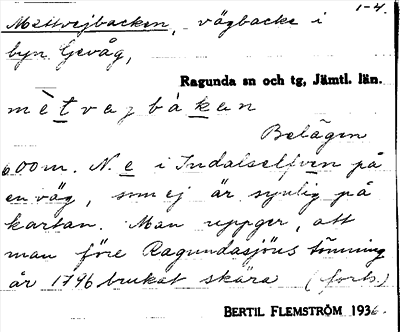 1-4.
Mettvejbacken, vägbacke i
byn Gevåg,
Ragunda sn och tg, Jämtl. län.
mètvajbàkan
Belägen
600 m. N. e i Indalselfven på
en väg, som ej är synlig på
kartan. Man uppger, att
man före Ragundasjöns tömning
år 1796 brukat skära (forts.)
BERTIL FLEMSTRÖM 1936.